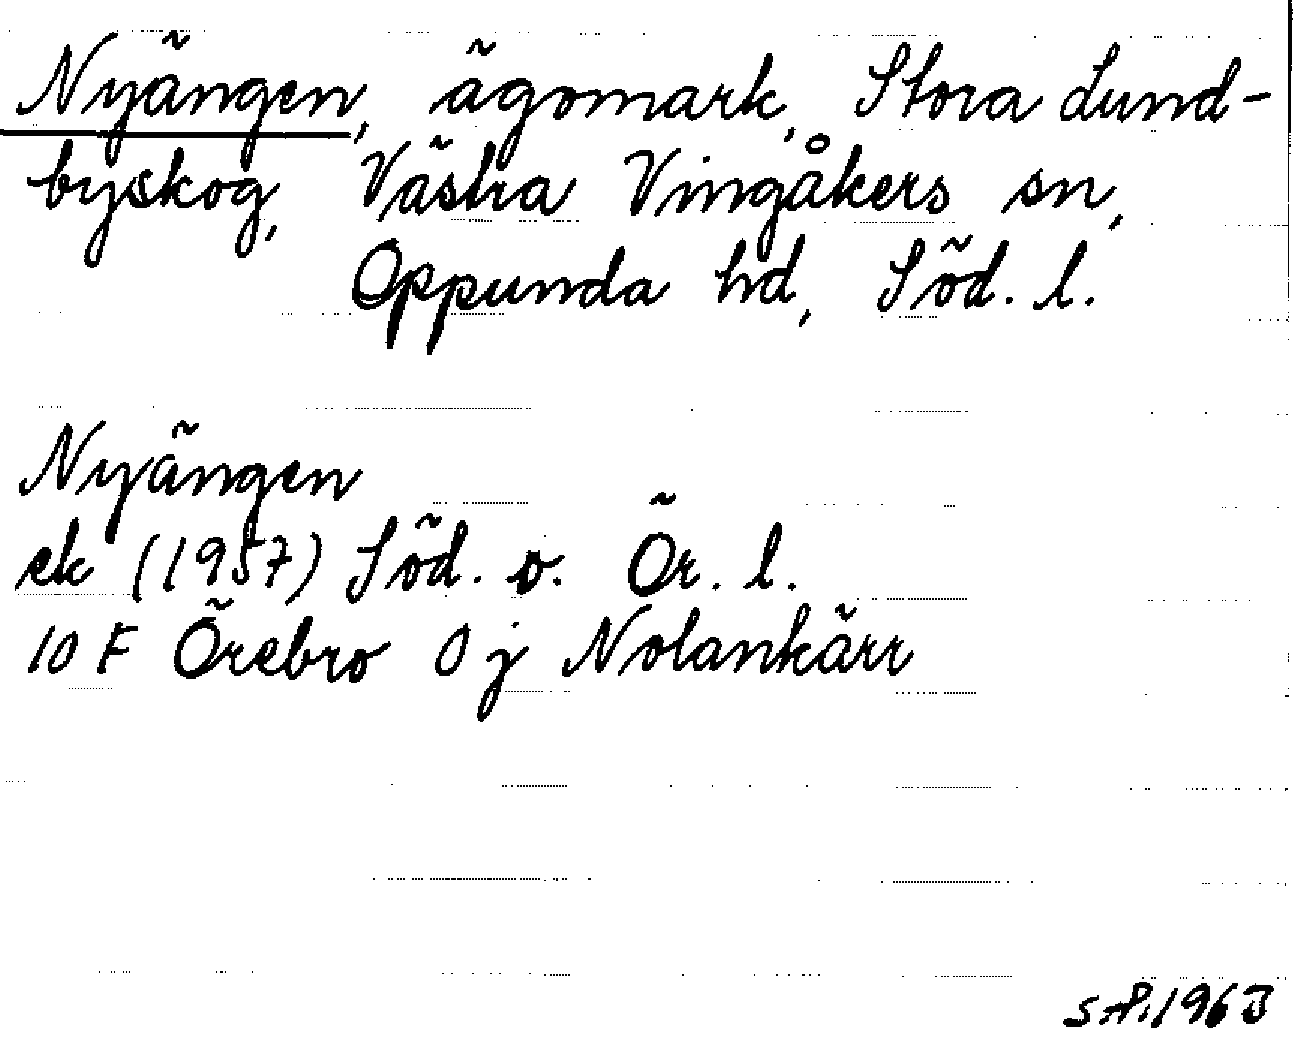 Nyängen, ägomark, Stora Lund-
byskog, Västra Vingåkers sn,
Oppunda hd, Söd. l.
Nyängen
ek (1957) Söd. o. Ör. l.
10 F Örebro 0 j Nolankärr
1963